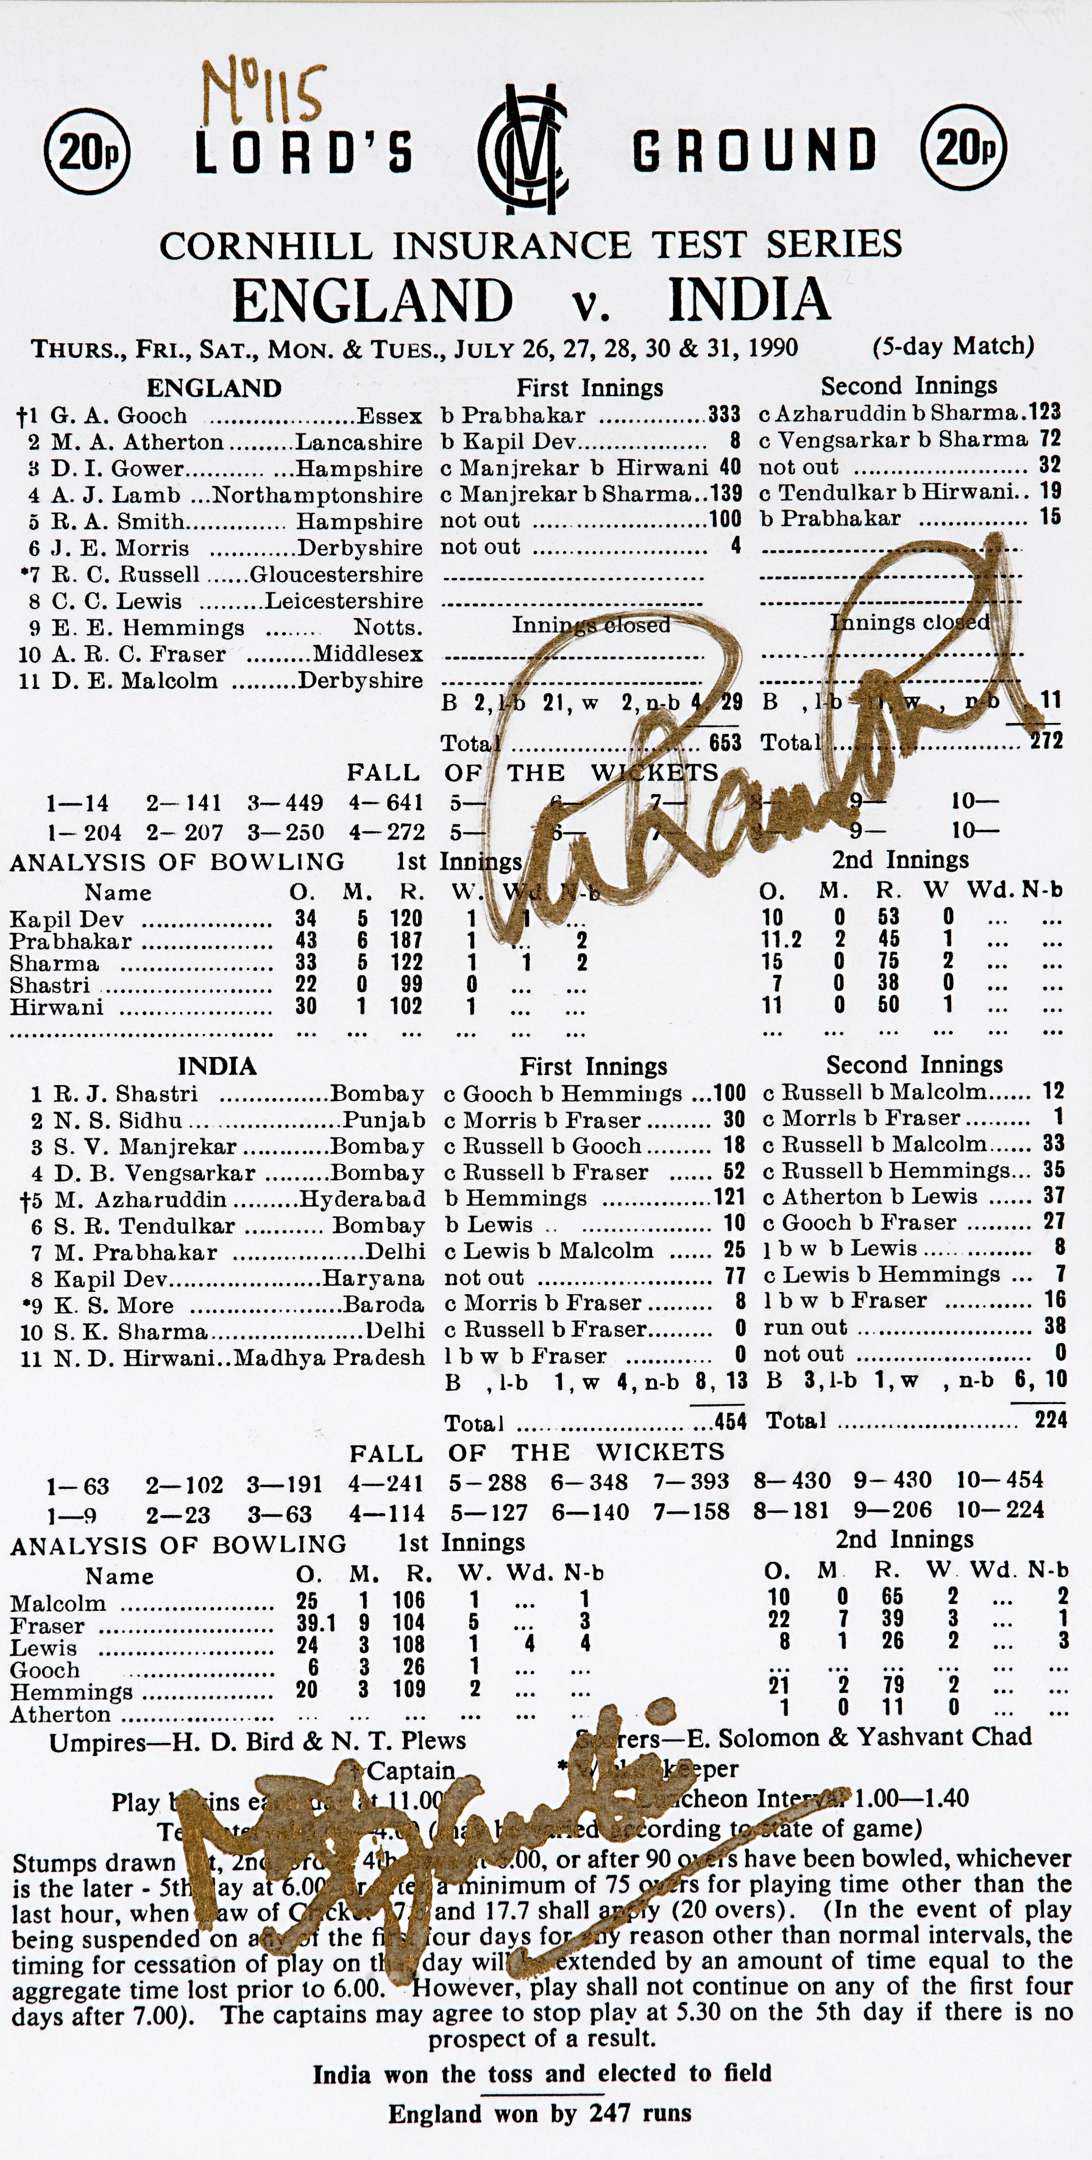 Nº115
20p LORD'S MCC GROUND 20p
CORNHILL INSURANCE TEST SERIES
ENGLAND v. INDIA
THURS., FRI., SAT., MON. & TUES., JULY 26, 27, 28, 30 & 31, 1990 (5-day Match)
ENGLAND First Innings Second Innings
†1 G. A. Gooch ..................Essex b Prabhakar .............333 c Azharuddin b Sharma.123
2 M. A. Atherton.........Lancashire b Kapil Dev................ 8 c Vengsarkar b Sharma 72
3 D. I. Gower........... ...Hampshire c Manjrekar b Hirwani 40 not out ........................ 32
4 A. J. Lamb ...Northamptonshire c Manjrekar b Sharma..139 c Tendulkar b Hirwani.. 19
5 R. A. Smith.............. Hampshire not out .......................100 b Prabhakar ............... 15
6 J. E. Morris ............Derbyshire not out ........................ 4
*7 R. C. Russell ......Gloucestershire
8 C. C. Lewis .........Leicestershire
9 E. E. Hemmings ....... Notts. Innings closed Innings closed
10 A. R. C. Fraser .........Middlesex
11 D. E. Malcolm .........Derbyshire
B 2, l-b 21, w 2, n-b 4, 29 B , l-b 11, w , n-b , 11
Total .......................... 653 Total .......................... 272
FALL OF THE WICKETS
1—14 2—141 3—449 4—641 5— 6— 7— 8— 9— 10—
1—204 2—207 3—250 4—272 5— 6— 7— 8— 9— 10—
ANALYSIS OF BOWLING 1st Innings 2nd Innings
Name O. M. R. W. Wd. N-b O. M. R. W Wd. N-b
Kapil Dev ................... 34 5 120 1 1 ... 10 0 53 0 ... ...
Prabhakar ................... 43 6 187 1 ... 2 11.2 2 45 1 ... ...
Sharma ...................... 33 5 122 1 1 2 15 0 75 2 ... ...
Shastri ........................ 22 0 99 0 ... ... 7 0 38 0 ... ...
Hirwani ...................... 30 1 102 1 ... ... 11 0 50 1 ... ...
...................................... ... ... ... ... ... ... ... ... ... ... ... ...
INDIA First Innings Second Innings
1 R. J. Shastri ................Bombay c Gooch b Hemmings ...100 c Russell b Malcolm...... 12
2 N. S. Sidhu ......................Punjab c Morris b Fraser ......... 30 c Morrls b Fraser ......... 1
3 S. V. Manjrekar ............Bombay c Russell b Gooch ......... 18 c Russell b Malcolm...... 33
4 D. B. Vengsarkar .........Bombay c Russell b Fraser ...... 52 c Russell b Hemmings... 35
†5 M. Azharuddin .........Hyderabad b Hemmings ...............121 c Atherton b Lewis ...... 37
6 S. R. Tendulkar ........... Bombay b Lewis .. .................. 10 c Gooch b Fraser ......... 27
7 M. Prabhakar ..................Delhi c Lewis b Malcolm ...... 25 l b w b Lewis ............... 8
8 Kapil Dev......................Haryana not out ........................ 77 c Lewis b Hemmings ... 7
*9 K. S. More .....................Baroda c Morris b Fraser ......... 8 l b w b Fraser ............ 16
10 S. K. Sharma.....................Delhi c Russell b Fraser......... 0 run out ........................ 38
11 N. D. Hirwani..Madhya Pradesh l b w b Fraser ............ 0 not out ........................ 0
B , l-b 1, w 4, n-b 8, 13 B 3, l-b 1, w , n-b 6, 10
Total ..............................454 Total ......................... 224
FALL OF THE WICKETS
1—63 2—102 3—191 4—241 5—288 6—348 7—393 8—430 9—430 10—454
1—9 2—23 3—63 4—114 5—127 6—140 7—158 8—181 9—206 10—224
ANALYSIS OF BOWLING 1st Innings 2nd Innings
Name O. M. R. W. Wd. N-b O. M R. W. Wd. N-b
Malcolm ...................... 25 1 106 1 ... 1 10 0 65 2 ... 2
Fraser ......................... 39.1 9 104 5 ... 3 22 7 39 3 ... 1
Lewis ......................... 24 3 108 1 4 4 8 1 26 2 ... 3
Gooch ..................... 6 3 26 1 ... ... ... ... ... ... ... ...
Hemmings ................... 20 3 109 2 ... ... 21 2 79 2 ... ...
Atherton ...................... ... ... ... ... ... ... 1 0 11 0 ... ...
Umpires—H. D. Bird & N. T. Plews Scorers—E. Solomon & Yashvant Chad
† Captain * Wicket-keeper
Play begins each day at 11.00 Luncheon Interval 1.00—1.40
Tea Interval 4.00 (may be varied according to state of game)
Stumps drawn 1st, 2nd, 3rd & 4th days at 6.00, or after 90 overs have been bowled, whichever
is the later - 5th day at 6.00 or after a minimum of 75 overs for playing time other than the
last hour, when Law of Cricket 17.6 and 17.7 shall apply (20 overs). (In the event of play
being suspended on any of the first four days for any reason other than normal intervals, the
timing for cessation of play on that day will be extended by an amount of time equal to the
aggregate time lost prior to 6.00. However, play shall not continue on any of the first four
days after 7.00). The captains may agree to stop play at 5.30 on the 5th day if there is no
prospect of a result.
India won the toss and elected to field
England won by 247 runs